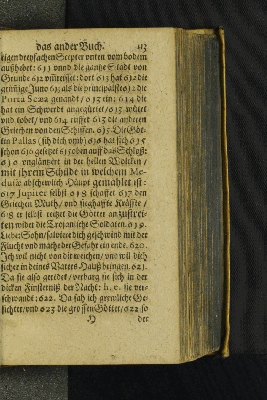 das ander Buch. 113
seinen dreyfachen Scepter unten vom bodem
außhebet: 611 unnd die gantze Stadt von
Grunde 612 umbreisset: dort 613 hat 612 die
grimmige Juno 613 als die principalste 613 die
Porta Scæa genandt / 613 ein; 614 die
hat ein Schwerdt angegürtet / 613 wütet
und tobet / und 614 ruffet 613 die anderen
Griechen von den Schiffen. 615. Die Göt-
tin Pallas (sih dich umb) 616 hat sich 615
schon 616 gesetzt 615 oben auff das Schloß:
616 unglänzet in der hellen Wolcken /
mit ihrem Schilde in welchem Me-
dusæ abschewlich Haupt gemahlet ist:
617 Jupiter selbst 618 schaffet 617 den
Griechen Muth / und sieghaffte Kräffte /
618 er selbst reitzet die Götter an zustrei-
ten wider die Trojanische Soldaten. 619.
Lieber Sohn / salviere dich geschwind mit der
Flucht und mache der Gefahr ein ende. 620.
Ich wil nicht von dir weichen / und wil dich
sicher in deines Vaters Hauß bringen. 621.
Da sie also geredet / verbarg sie sich in der
dicken Finsterniß der Nacht: h. e. sie ver-
schwandt: 622. Da sah ich grewliche Ge-
sichter / und 623 die grossen Götter / 622 so
H der